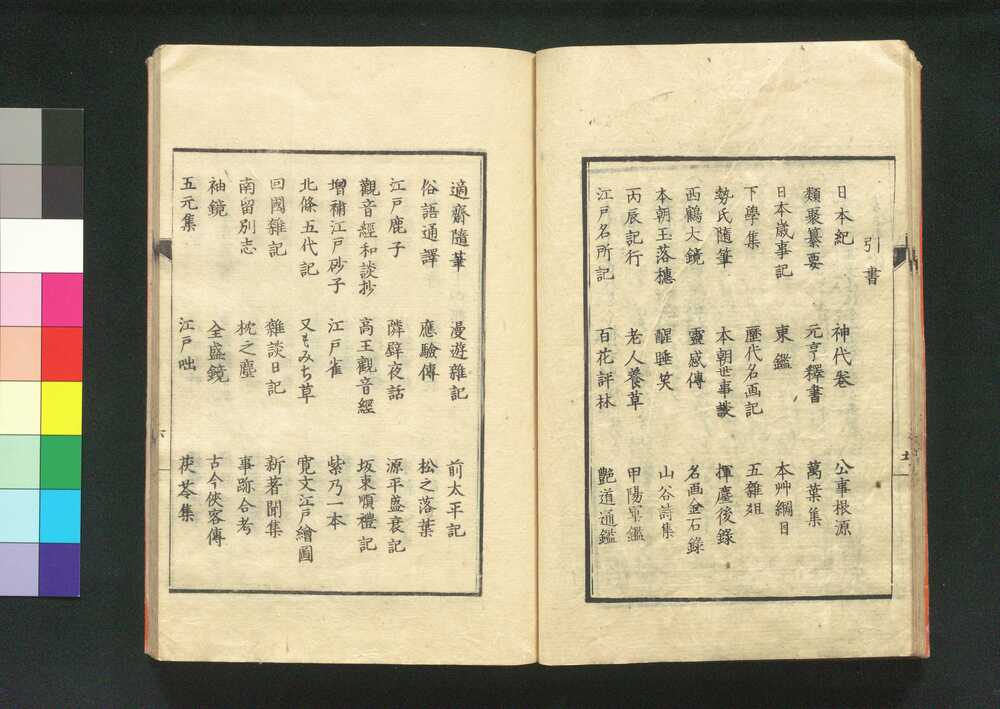 引書
日本紀 神代巻 公事根源
類聚纂要 元亨釋書 萬葉集
日本歳事記 東鑑 本艸綱目
下學集 歴代名画記 五雜爼
勢氏隨筆 本朝世事談 揮麈後録
西鶴大鏡 靈感傳 名画金石録
本朝玉落穗 醒睡笑 山谷詩集
丙辰記行 老人養草 甲陽軍鑑
江戸名所記 百花評林 艶道通鑑
適齋隨筆 漫遊雜記 前太平記
俗語通譯 應驗傳 松之落葉
江戸鹿子 隣壁夜話 源平盛衰記
觀音經和談抄 高王觀音經 坂東順禮記
増補江戸砂子 江戸雀 紫乃一本
北條五代記 又もみち草 寛文江戸繪圖
回國雜記 雜談日記 新著聞集
南留別志 枕之塵 事跡合考
袖鏡 全盛鏡 古今俠客傳
五元集 江戸咄 茯苓集
六